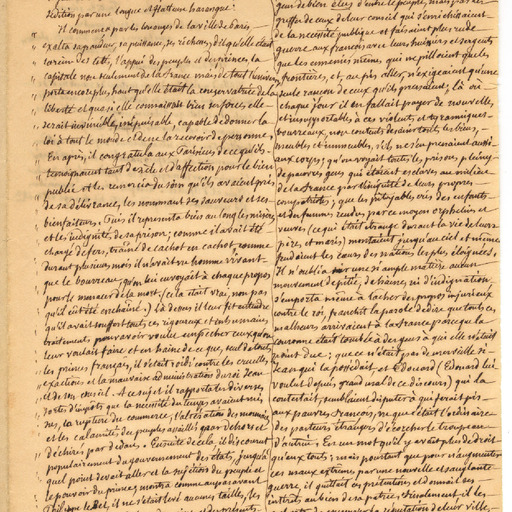 sédition par une longue et flatteuse harangue:
Il commença par les louanges de la ville de Paris
exalta sa grandeur, sa puissance, ses richesses, dit qu'elle était
la reine des cités, l'appui des peuples et des princes, la
capitale non seulement de la France mais de tout l'univers,
porta encore plus haut qu'elle était la conservatrice de la
liberté et que si elle connaissait bien ses forces, elle
serait invincible, inépuisable, capable de donner la
loi à tout le monde et de ne la recevoir de personne.
En après, il congratula aux Parisiens de ce qu'ils
témoignaient tant de zèle et d'affection pour le bien
public et les remercia du soin qu'ils avaient pris
de sa délivrance, les nommant ses sauveurs et ses
bienfaiteurs. Puis il représenta bien au long les misères
et les indignités de sa prison; comme il avait été
chargé de fers, traîné de cachot en cachot, comme
durant plusieurs mois il n'avait vu homme vivant
que le bourreau, qu'on lui envoyait à chaque propos
pour le menacer de la mort. (cela était vrai, non pas
qu'il eut été enchaîné.) Là dessus il leur fit entendre
qu'il avait souffert tous ces rigoureux et inhumains
traitements pour avoir voulu empêcher ceux qu'on
leur voulait faire et en haine de ce que, seul de tous
les princes français, il s'était roidi contre les cruelles
exactions et la mauvaise administration du roi Jean
et de son conseil. À ce sujet il rapporta les diverses
sortes d'impôts que la nécessité du temps avaient mis
sus, la rupture de commerce, l'altération des monnaies
et les calamités des peuples assaillis par dehors et
déchirés par dedans. Ensuite de cela, il discourut
populairement du gouvernement des états, jusqu'à
quel point devait aller et la sujétion du peuple et
le pouvoir du prince, montra comme auparavant
Philippe le Bel, il ne s'était levé aucunes tailles, les
gens de bien élus d'entre le peuple, mais par les
griffes de ceux de leur conseil qui s'enrichissaient
de la nécessité publique et faisaient plus rude
guerre aux français avec leurs huissiers et sergents
que les ennemis même, qui ne pillaient que les
frontières, et, au pis aller, n'exigeaient qu'une
seule rançon de ceux qu'ils prenaient, là où
chaque jour il en fallait payer de nouvelles
et insupportables à ces violents et tyranniques
bourreaux, non contents de saisir tous les biens,
meubles et immeubles, s'ils ne s'en prenaient aussi
aux corps; qu'on voyait toutes les prisons pleines
de pauvres gens qui étaient esclaves au milieu
de la France par l'iniquité de leurs propres
compatriotes; que les pitoyables cris des enfants
et des femmes rendus par ce moyen orphelins et
veuves (ce qui était étrange durant la vie de leurs
pères et maris) montaient jusqu'au ciel et même
fendaient les cœurs des nations les plus éloignées.
Il n'oublia sur une si ample matière aucun
mouvement de pitié, de haine, ni d'indignation,
s'emporta même à lâcher des propos injurieux
contre le roi, franchit la parole de dire que tous ces
malheurs arrivaient à la France parce que la
couronne était tombée à des gens à qui elle n'était
point due: que ce n'était pas de merveille si
Jean qui la possédait et Edouard (Edouard lui
voulut depuis grand mal de ce discours) qui la
contestait, semblaient disputer à qui ferait pis
aux pauvres François, vu que c'était l'ordinaire
des pasteurs étrangers d'écorcher le troupeau
d'autrui. En un mot qu'il y avait plus de droit
qu'eux tous; mais pourtant que pour n'augmenter
ces maux extrêmes par une nouvelle et sanglante
guerre, il quittait ses prétentions et donnait ses
intérêts au bien de sa patrie. Finalement il les